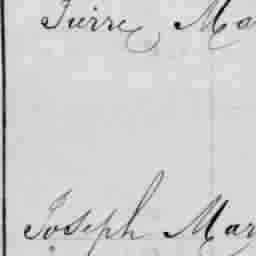 Pierre Ma
Joseph Mar